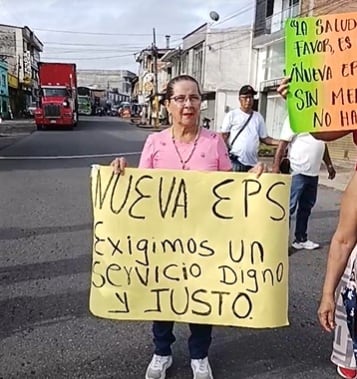 NUEVA EPS
Exigimos un
servicio Digno
y JUSTO.
"LA SALUD
FAVOR, ES
¡NUEVA EP
SIN ME
NO HA